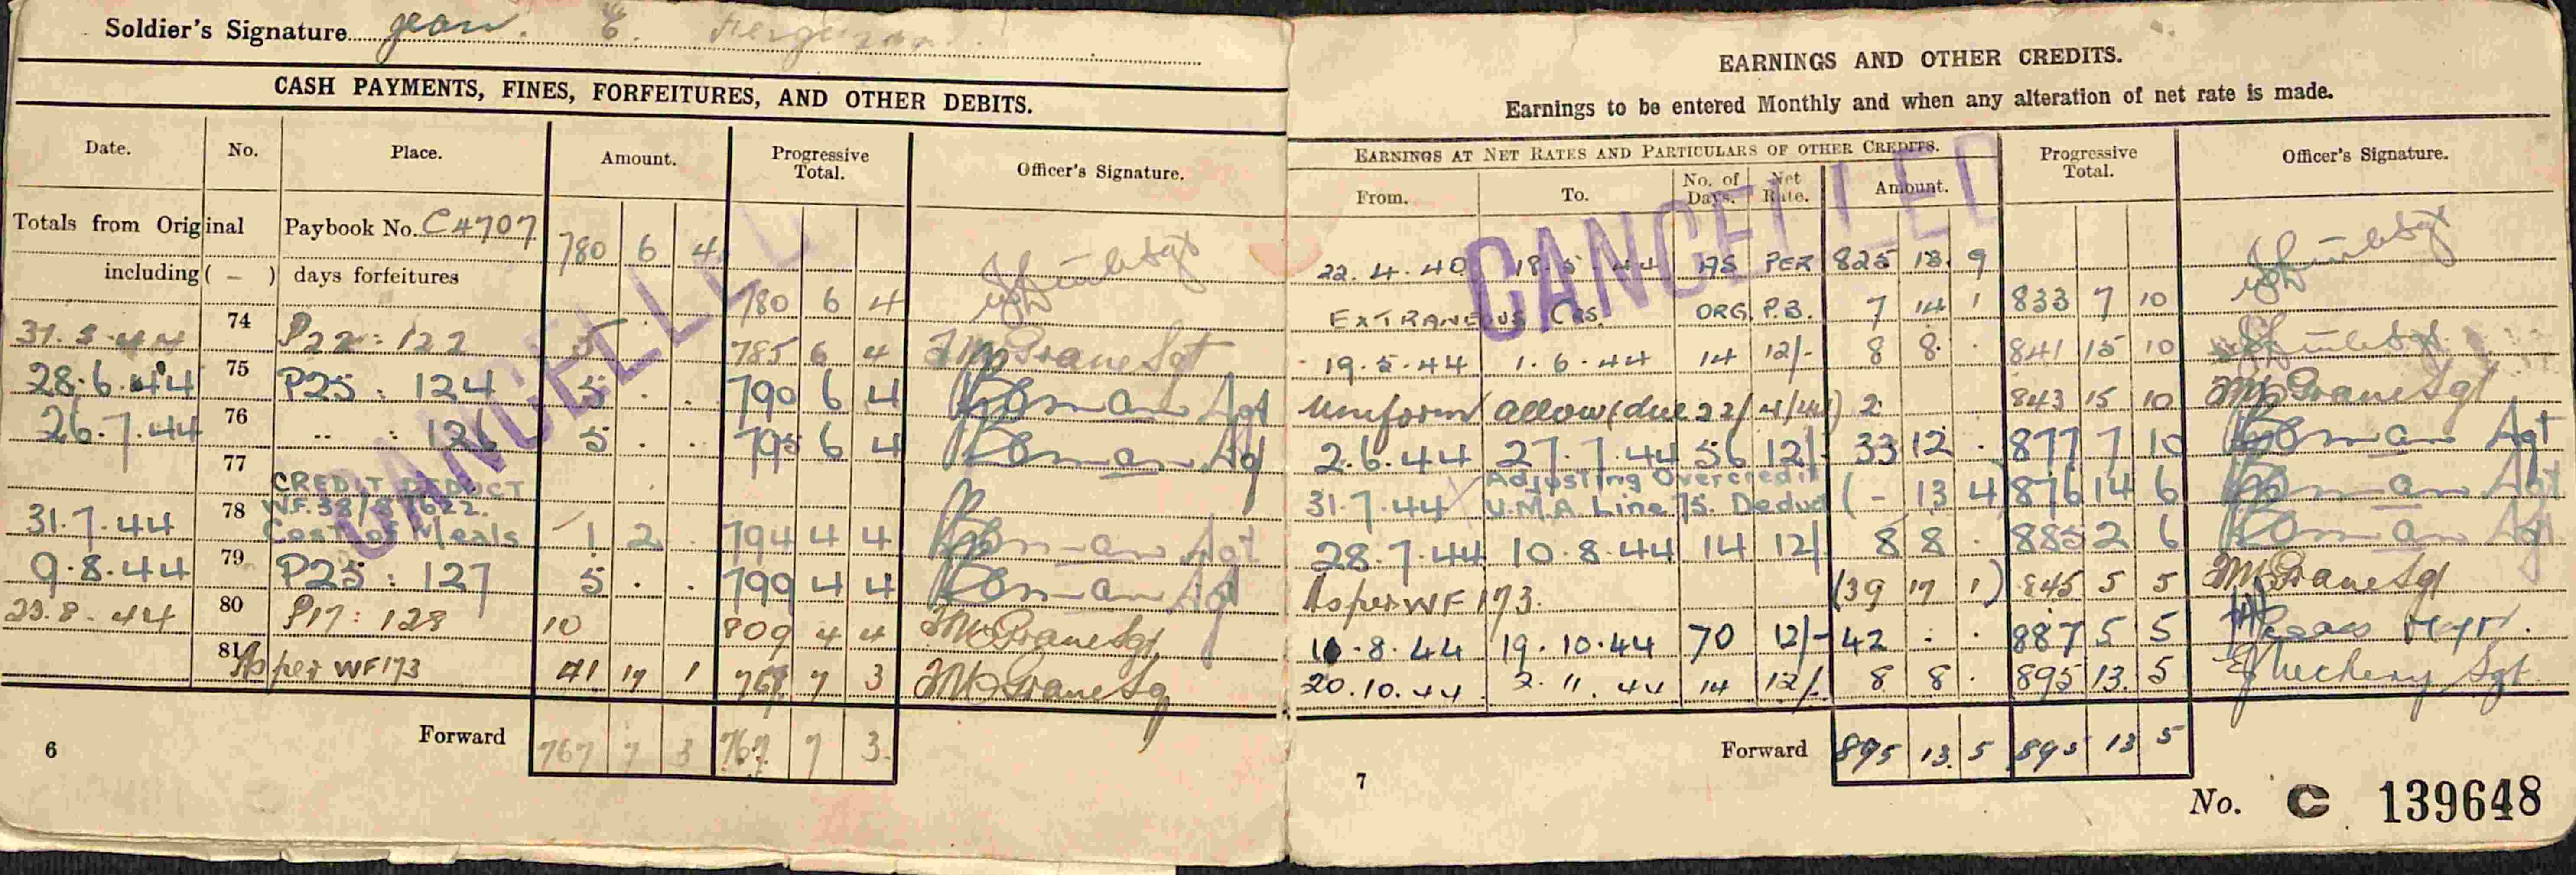 Soldier's Signature Jean. E. Ferguson
CASH PAYMENTS, FINES, FORFEITURES, AND OTHER DEBITS.
Date. No. Place. Amount. Progressive Total. Officer's Signature.
Totals from Original Paybook No. C4707 780 6 4
including ( – ) days forfeitures 780 6 4
31.5.44 74 P22 : 122 5 . . 785 6 4 Sgt
28.6.44 75 P25 : 124 5 . . 790 6 4 Sgt
26.7.44 76 " : 126 5 . . 795 6 4 Sgt
77 CREDIT DEDUCT
31.7.44 78 W.F.38/ Cost of Meals 1 2 . 794 4 4 Sgt
9.8.44 79 P25 : 127 5 . . 799 4 4 Sgt
23.8.44 80 P17 : 128 10 809 4 4 Sgt
81 As per WF173 41 17 1 767 7 3 Sgt
Forward 767 7 3 767 7 3
6
CANCELLED
EARNINGS AND OTHER CREDITS.
Earnings to be entered Monthly and when any alteration of net rate is made.
EARNINGS AT NET RATES AND PARTICULARS OF OTHER CREDITS. Progressive Total. Officer's Signature.
From. To. No. of Days. Net Rate. Amount.
22.4.40 18.5.44 AS PER 825 13 9
EXTRANEOUS CRS. ORG. P.B. 7 14 1 833 7 10
19.5.44 1.6.44 14 12/- 8 8 . 841 15 10
Uniform allow (due 22/4/44) 2 843 15 10 Sgt
2.6.44 27.7.44 56 12/- 33 12 . 877 7 10 Sgt
31.7.44 Adjusting Overcredit U.M.A Line 75. Deduct (- 13 4 876 14 6 Sgt
28.7.44 10.8.44 14 12/ 8 8 . 885 2 6 Sgt
As per WF 173. (39 17 1) 845 5 5 Sgt
11.8.44 19.10.44 70 12/- 42 . . 887 5 5
20.10.44 2.11.44 14 12/. 8 8 . 895 13 5 Sgt.
Forward 895 13 5 895 13 5
7
No. C 139648
CANCELLED